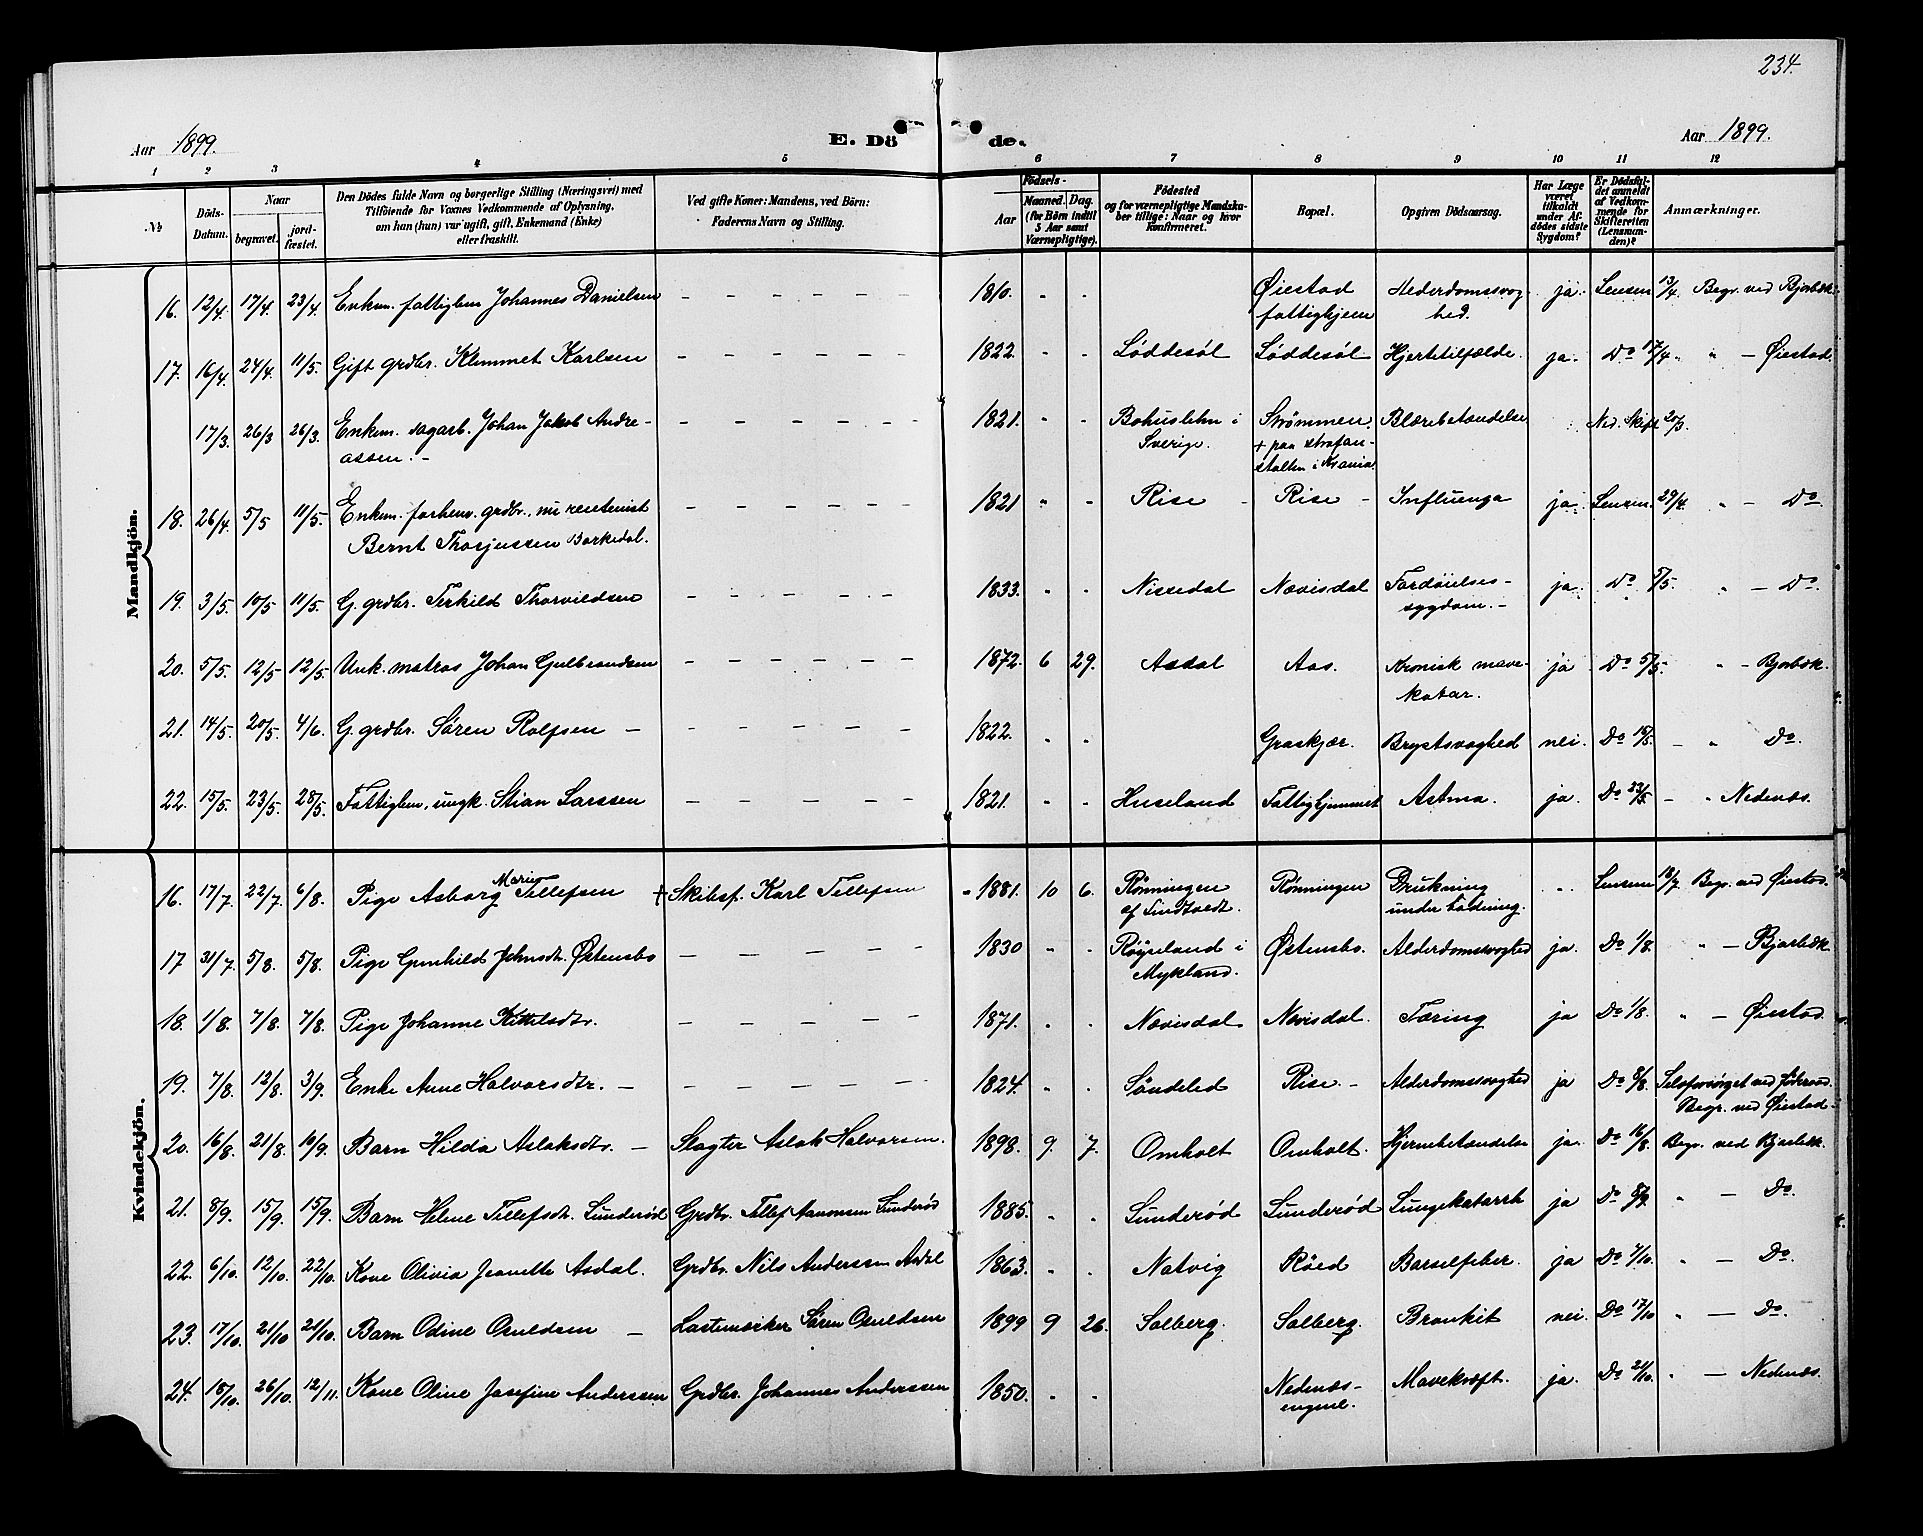 234.
Aar 1899. E. Dö de. Aar 1899.
1 2 3 4 5 6 7 8 9 10 11 12
№ Döds-Datum. Naar begravet. jord-fæstet. Den Dödes fulde Navn og borgerlige Stilling (Næringsvei) med Tilföiende for Voxnes Vedkommende af Oplysning, om han (hun) var ugift, gift, Enkemand (Enke) eller fraskilt. Ved gifte Koner: Mandens, ved Börn: Faderens Navn og Stilling. Födsels- Aar Maaned. Dag. (for Börn indtil 5 Aar samt Værnepligtige). Födested og for værnepligtige Mandskaber tillige: Naar og hvor Konfirmeret. Bopæl. Opgiven Dödsaarsag. Har Læge været tilkaldt under Afdödes sidste Sygdom? Er Dödsfaldet anmeldt af Vedkommende for Skifteretten (Lensmanden)? Anmærkninger.
Mandkjön.
16. 12/4 17/4 23/4 Enkem. fattiglem Johannes Danielsen – – – – – – 1810. " " Øiestad fattighjem Alderdomssvaghed. ja. Lensm 13/4 Begr. ved Bjorbæk.
17. 16/4 24/4 11/5. Gift grdbr. Klemmet Karlsen – – – – – – 1822. " " Løddesøl Løddesøl Hjertetilfælde. ja. Do 17/4 " " – Øiestad.
17/3. 26/3 26/3. Enkem. sagarb. Johan Jakob Andreassen. – – – – – – – 1821. " " Bohuslehn i Sverige. Strømmen + paa strafanstalten i Krania. Blærebetændelse Ned. Skift 20/3.
18. 26/4. 5/5 11/5. Enkem. forhenv. grdbr., nu rentenist Bernt Thorjussen Barkedal. – – – – – – 1821 " " Rise – Rise – Influenza ja. Lensm. 29/4. " – Do
19. 3/5. 10/5 11/5. G. grdbr. Terkild Thorvildsen – – – – – – 1833. " " Nissedal Nævisdal Fordøielsessygdom. – ja. Do 5/5. " – Do.
20. 5/5. 12/5 12/5. Unk. matros Johan Gulbrandsen – – – – – – 1872. 6 29. Asdal Aas. Kronisk mavekatar. ja Do 5/5. " – Bjorbæk.
21. 14/5. 20/5. 4/6 G. grdbr. Søren Rolfsen – – – – – – – 1822. " " Graskjær. Brystsvaghed nei. Do 15/5. – " Do.
22. 15/5. 23/5. 28/5. Fattiglem, ungk. Stian Larssen – – – – – – 1821. " " Huseland Fattighjemmet Astma. ja. Do 23/5. – " Nedenæs.
Kvindekjön.
16. 17/7. 22/7. 6/8. Pige Asborg Marie Tellefsen + Skibsf. Karl Tellefsen " 1881. 10 6. Rønningen af Lindtveit. Rønningen Drukning under badning. " Lensm 18/7. Begr. ved Øiestad.
17 31/7. 5/8. 5/8. Pige Gunhild Johnsdt. Østensbo – – – – – 1830 " " Røyseland i Mykland. Østensbo. Alderdomssvaghed ja. Do 1/8. " – Bjorbæk.
18. 1/8. 7/8. 7/8. Pige Johanne Kittelsdtr. – – – – – – 1871. " " Nævisdal Nævisdal. Tæring ja Do 1/8. " – Øiestad.
19. 7/8. 12/8. 3/9. Enke Anne Halvorsdtr. – – – – – – – 1824. " " Söndeled Rise. – Alderdomssvaghed ja Do 8/8. Begr. ved Øiestad.
20. 16/8. 21/8. 10/9. Barn Hilda Aslaksdtr. – Slagter Aslak Halvorsen. 1898. 9. 7. Omholt Omholt. Hjernebetændelse ja. Do 16/8. Begr. ved Bjorbæk.
21. 8/9. 15/9. 15/9. Barn Helene Tellefsdt. Lunderød Grdbr. Tellef Aanonsen Lunderød 1885. " " Lunderød Lunderød Lungekatarrh ja Do 8/9. " – Do.
22. 6/10. 12/10. 22/10. Kone Olivia Jeanette Asdal. Grdbr. Nils Anderssen Asdal 1863. " " Natvig Røed Barselfeber. ja Do 7/10. " – Do.
23. 17/10. 21/10 21/10. Barn Odine Onuldsen – Lastemærker Søren Onuldsen 1899 9 26. Solberg. Solberg. Bronkit nei. Do 17/10 " – Do.
24. 18/10. 26/10. 12/11. Kone Oline Josefine Anderssen Grdbr. Johannes Anderssen 1850. " " Nedenæsengene. Mavekræft. ja. Do 21/10. " – Nedenæs.